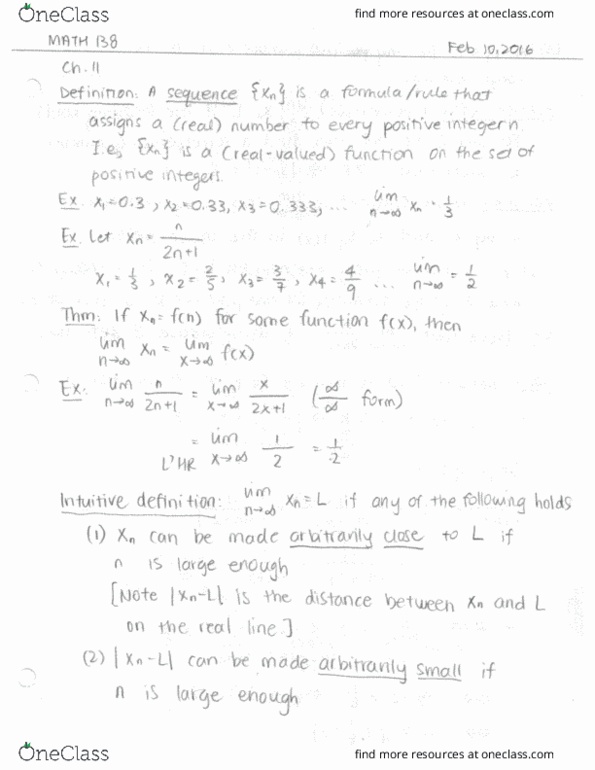 OneClass
find more resources at oneclass.com
MATH 138
Feb. 10, 2016
Ch. 11
Definition: A sequence {xn} is a formula/rule that
assigns a (real) number to every positive integer n.
I.e., {xn} is a (real-valued) function on the set of
positive integers.
Ex. x₁=0.3, x₂=0.33, x₃=0.333, ... lim n→∞ xn = 1/3
Ex. Let xn = n/(2n+1)
x₁ = 1/3, x₂ = 2/5, x₃ = 3/7, x₄ = 4/9 ... lim n→∞ = 1/2
Thm: If xn = f(n) for some function f(x), then
lim n→∞ xn = lim x→∞ f(x)
Ex: lim n→∞ n/(2n+1) = lim x→∞ x/(2x+1) (∞/∞ form)
= L'HR lim x→∞ 1/2 = 1/2
Intuitive definition: lim n→∞ xn = L if any of the following holds
(1) xn can be made arbitrarily close to L if
n is large enough
[Note |xn-L| is the distance between xn and L
on the real line.]
(2) |xn-L| can be made arbitrarily small if
n is large enough
OneClass
find more resources at oneclass.com